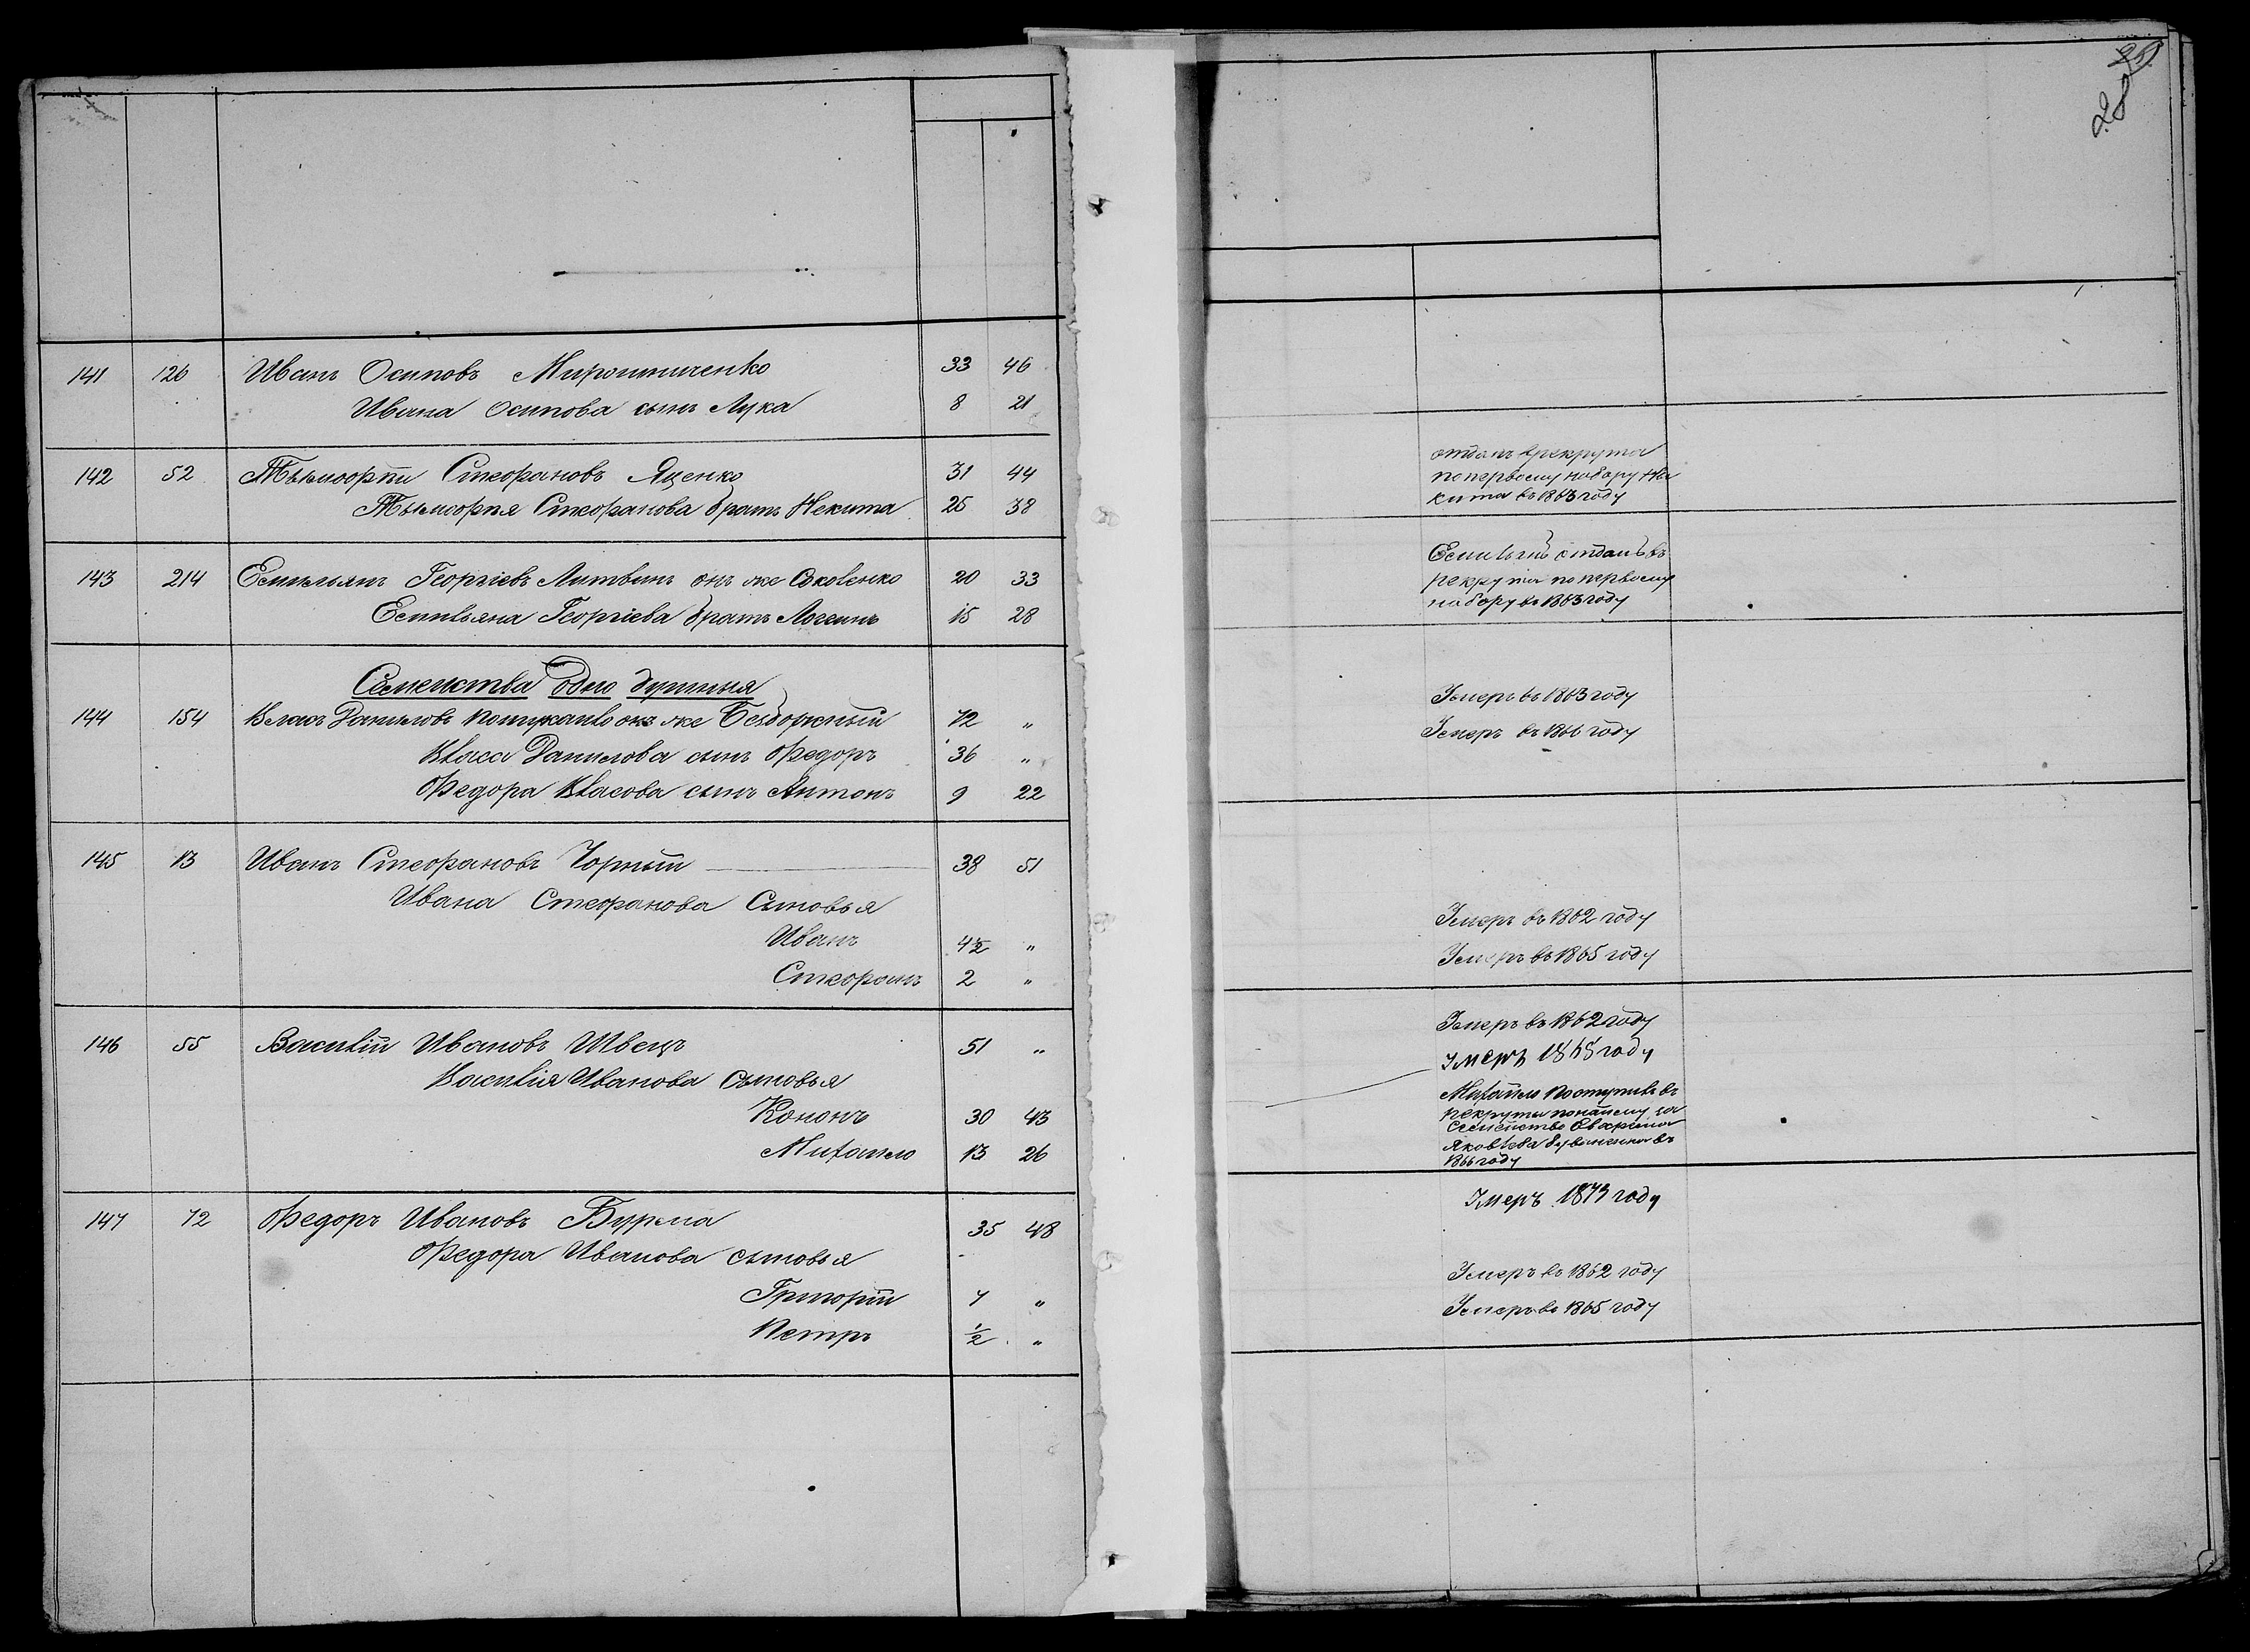 28
141 126 Иванъ Осиповъ Мирошниченко 33 46
Ивана Осипова сынъ Лука 8 21
142 52 Тымофѣй Стефановъ Яценко 31 44
Тымофѣя Стефанова братъ Некита 25 38
отданъ врекрута
попервому набору Не
кита въ 1863 году
143 214 Емильянъ Георгіевъ Литвинъ онъ же Соколенко 20 33
Емильяна Георгіева братъ Логинъ 15 28
отданъ въ
рекрута по первому
набору въ 1863 году
Семейства одно душныя
144 154 Власъ Даниловъ онъ же 72 „
Власа Данилова сынъ Федоръ 36 „
Федора Власова сынъ Антонъ 9 22
Умеръ въ 1863 году
Умеръ въ 1866 году
145 13 Иванъ Стефановъ Чорный 38 51
Ивана Стефанова Сыновья
Иванъ 4½ „
Стефанъ 2 „
Умеръ въ 1862 году
Умеръ въ 1865 году
146 55 Василій Ивановъ Швецъ 51 „
Василія Иванова Сыновья
Кононъ 30 43
Михайло 13 26
Умеръ въ 1862 году
умеръ 1868 году
Михайло поступилъ въ
рекруты понайму за
семейство
Яковлева въ
1866 году
147 72 Федоръ Ивановъ Бурма 35 48
Федора Иванова сыновья
Григорій 7 „
Петръ ½ „
Умеръ 1873 году
Умеръ въ 1862 году
Умеръ въ 1865 году